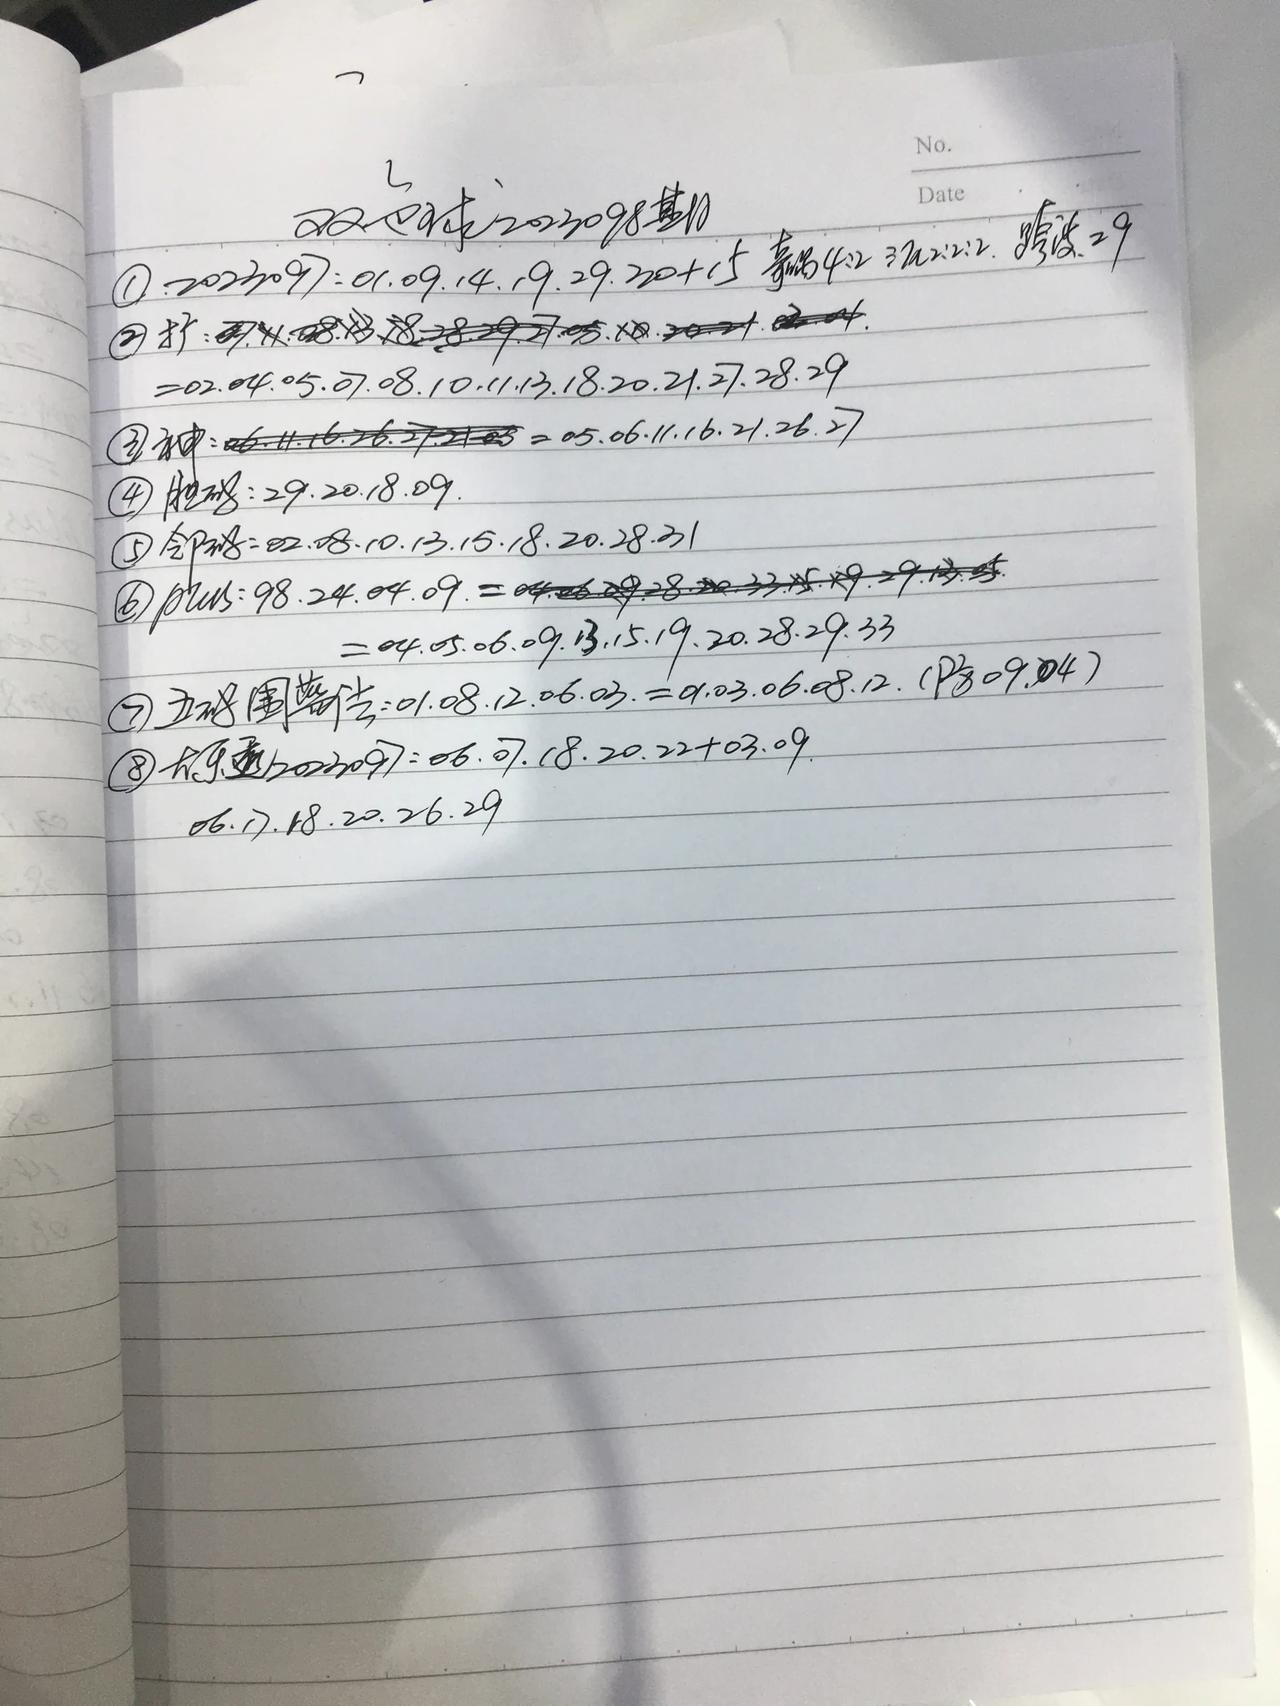 No.
Date
双色球2023098基日
① 2023097:01.09.14.19.29.30+15 奇偶4:2 三区2:2:2. 跨度:29
② 扩:
=02.04.05.07.08.10.11.13.18.20.21.27.28.29
③ 神:06.11.16.26.27.21.05=05.06.11.16.21.26.27
④ 胆码:29.20.18.09.
⑤ 邻码=02.08.10.13.15.18.20.28.31
⑥ plus:98.24.04.09.=
=04.05.06.09.13.15.19.20.28.29.33
⑦ 五码围蓝法:01.08.12.06.03.=01.03.06.08.12.(防09.04)
⑧ 大乐透2023097:06.07.18.20.22+03.09.
06.17.18.20.26.29